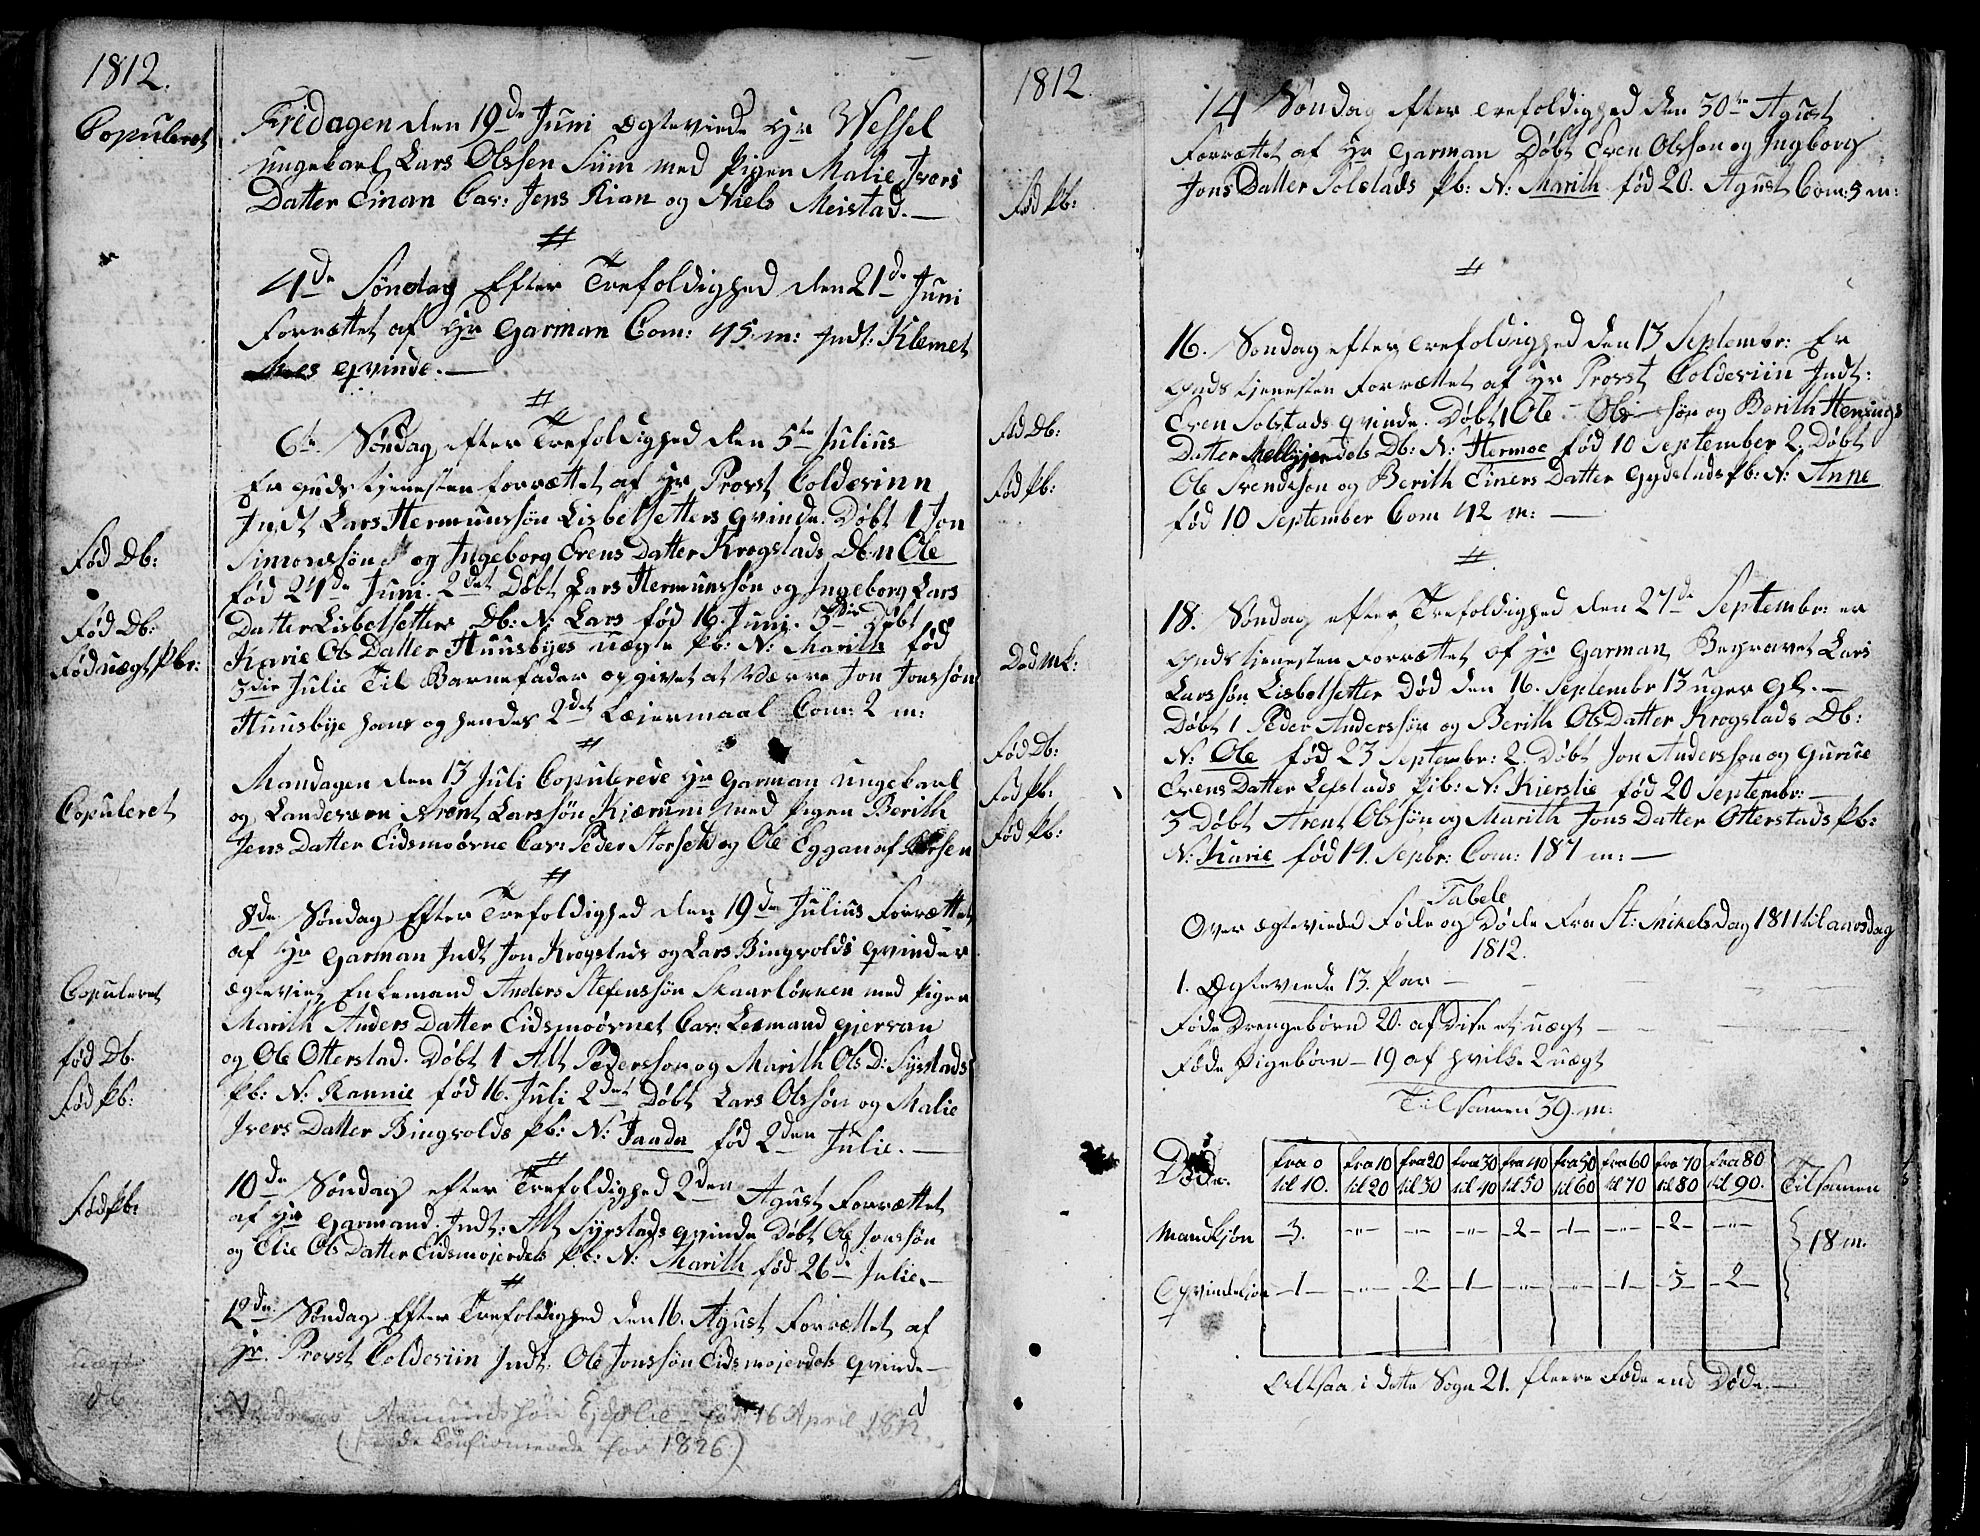 1812.
Copuleret
Fridagen den 19de Juni Ægteviede Hr Wessel
ungekarl Lars Olssen Siim med Pigen Malie Ivers
Datter Einan Cav: Jens Rian og Niels Meistad.—
#
4de Søndag Efter Trefoldighed den 21de Juni
Forrættet af Hr Garman Com: 45 m: Indt: Klemet
qvinde.—
#
6te Søndag efter Trefoldighed den 5te Julius
Er guds tjenesten forrættet af Hr Provst Coldevinn
Indt Lars Hermunssøn Lisbetsetters qvinde. Døbt 1 Jon
Fød Db:
Simonssøn og Ingeborg Evens Datter Krogstads Db N Ole
fød 24de Juni. 2det Døbt Lars Hermunssøn og Ingeborg Lars
Fød Db:
Datter Lisbetsetters Db: N: Lars fød 16. Juni. 3die Døbt
Fød uægt Pbr:
Karie Ols Datter Huusbyes uægte Pb: N: Marith fød
3die Julie Til Barnefader opgivet at være Jon Jonssøn
Huusbye hans og hendes 2det Leiermaal Com: 2 m:
#
Mandagen den 13 Juli Copulerede Hr Garman ungekarl
Copuleret
og Landeværn Arent Larssøn Kjærum med Pigen Berith
Jens Datter Eidsmoørne Cav: Peder Storset og Ole Eggan af
#
8de Søndag Efter Trefoldighed den 19de Julius Forrættet
af Hr Garman Indt Jon Krogstads og Lars Bingvolds qvinder
Copuleret
Ægteviet Enkemand Anders Stefenssøn Skaarlønnen med Pigen
Marith Anders Datter Eidsmoørnet Cav: Leemand Giervan
fød Db:
og Ole Otterstad. Døbt 1 Alt Pedersson og Marith Ols D: Syrstads
Fød Pb:
Pb: N: Rannie fød 16. Juli 2det Døbt Lars Olssøn og Malie
Ivers Datter Bingvolds Pb: N: Jaada fød 2den Julie.—
#
10de Søndag efter Trefoldighed 2den Agust Forrættet
Fød Pb:
af Hr Garmand. Indt: Alt Syrstads qvinde Døbt Ole Jonssøn
og Elie Ols Datter Eidsmojerdets Pb: N: Marith fød 26de Julie.—
#
12de Søndag Efter Trefoldighed den 16. Agust Forrættet af
Hr. Provst Coldeviin Indt: Ole Jonssøn Eidsmojerdets qvinde—
uægte
db
Andreas Amundssøn født 16 April 1812.
(: Confirmerede for 1826:)
1812.
14 Søndag efter Trefoldighed den 30te Agust
Forrættet af Hr Garman Døbt Even Olsson og Ingborg
Fød Pb:
Jons Datter Solstads Pb: N: Marith fød 20. Agust Com: 5 m:
#
16. Søndag efter Trefoldighed den 13 Septembr: Er
Guds tjenesten Forrættet af Hr Provst Coldeviin Indt:
Fød Db:
Even Solstads qvinde. Døbt 1 Ole Ols søn og Berith Hennings
Datter Db: N: Hermoe fød 10 September 2. Døbt
Fød Pb:
Ole Svendsson og Berith Einers Datter Gydstads Pb: N: Anne
fød 10 September Com 42 m: —
#
18. Søndag efter Trefoldighed den 27de Septembr: er
Død Mk:
Guds tjenesten Forrættet af Hr Garman Begravet Lars
Larssøn Lisbetsetter Død den 16. Septembr 13 uger gl.—
Døbt 1 Peder Anderssøn og Berith Ols Datter Krogstads Db:
Fød Db:
N: Ole fød 23 Septembr: 2. Døbt Jon Andersson og Gurue
Fød Pb:
Evens Datter Lefstads Pib: N: Kierstie fød 20 Septembr:—
Fød Pb:
3 Døbt Arent Olssøn og Marith Jons Datter Otterstads Pb:
N: Karie fød 14. Sepbr: Com: 187 m: —
Tabele
Over ægteviede Føde og Døde Fra St: Mikels Dag 1811 til aarsdag
1812.
1. Ægteviede 13. Par —
Føde Drengebørn 20. af Disse et uægt —
Føde Pigebørn — 19 af hvilke 2 uægt
Tilsamen 39. m:
Døde. fra 0 til 10. fra 10 til 20 fra 20 til 30 fra 30 til 40 fra 40 til 50 fra 50 til 60 fra 60 til 70 fra 70 til 80 fra 80 til 90. Tilsamen
Mandkjøn —3. —"— —"— —"— —2— —1— —"— —2— —"— } 18 m.
Qvindekjøn —1— —"— —2— —1— —"— —"— —1— —3— —2— }
Altsaa i dette Sogn 21. fleere Føde end Døde.—